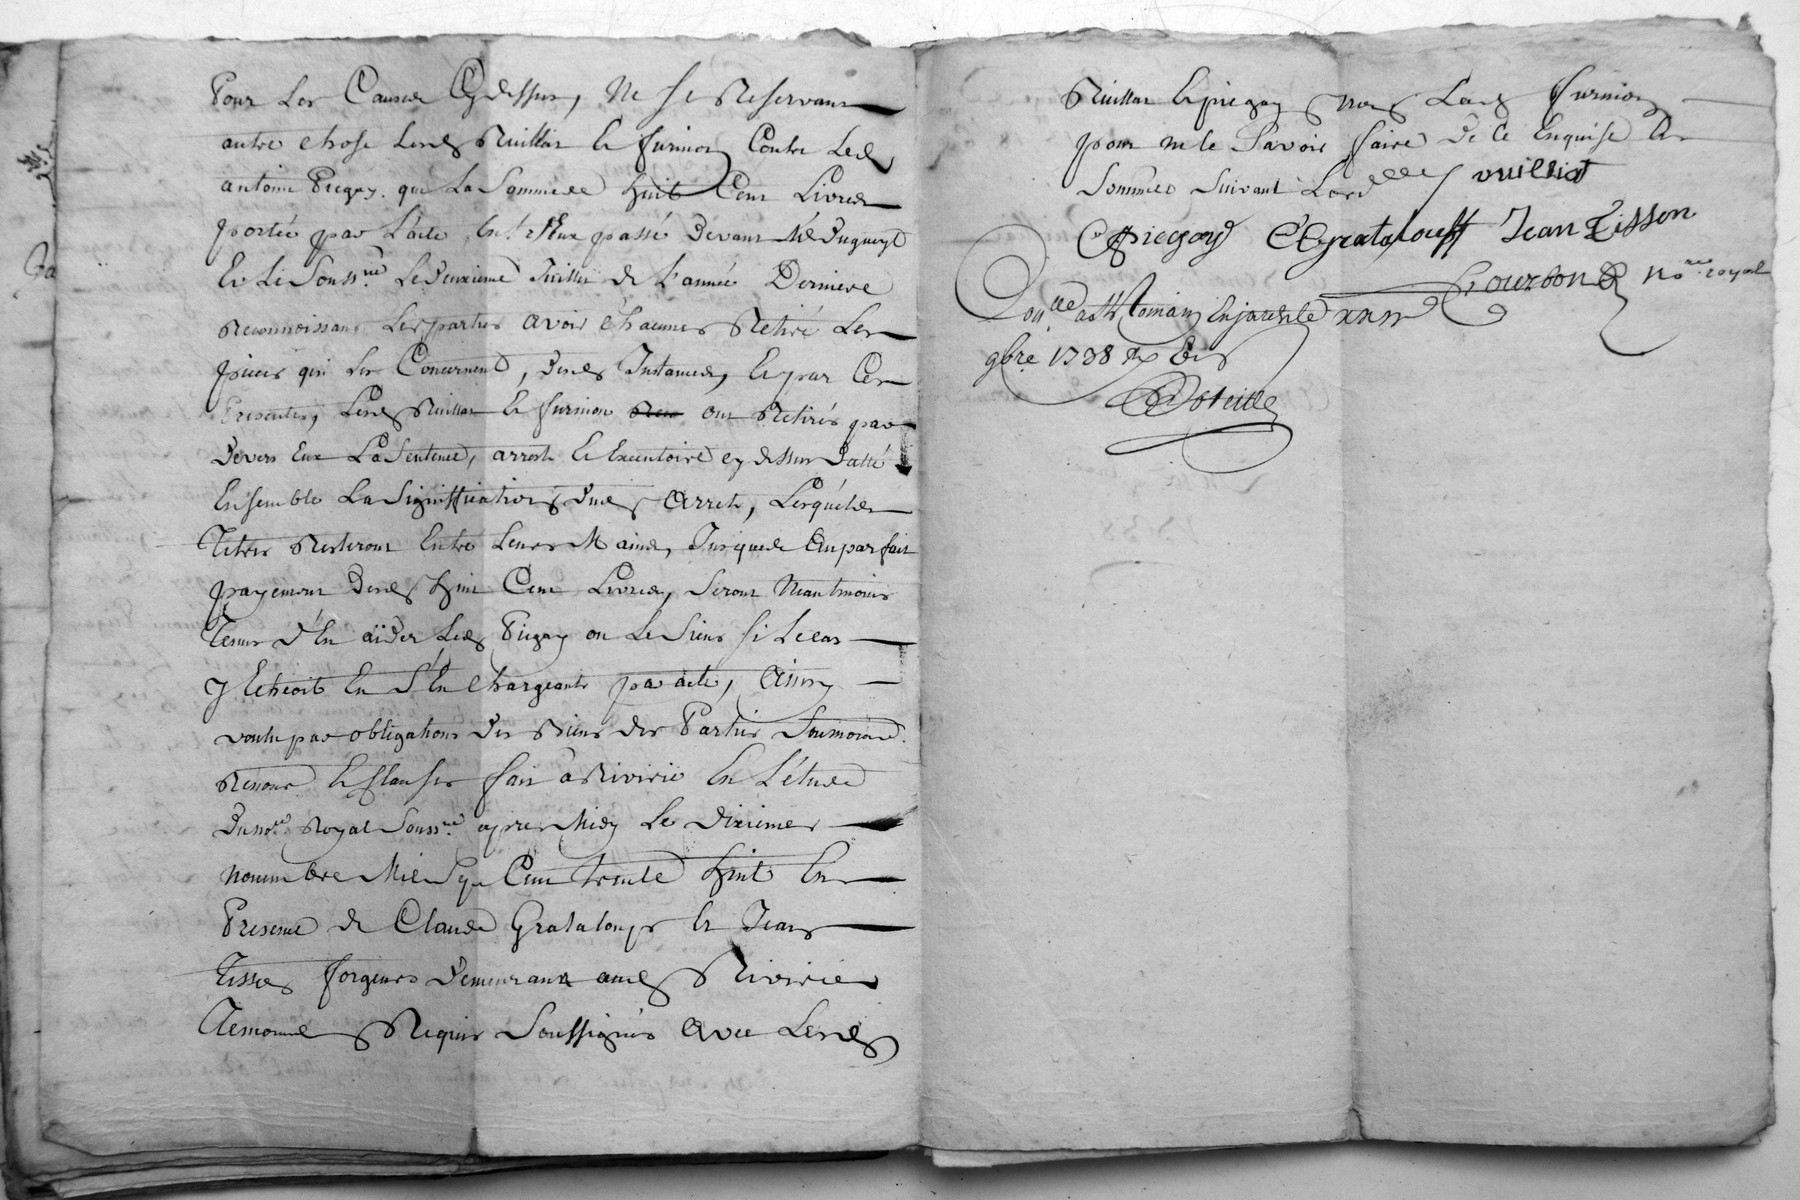 Pour Les Causes Cydessus, Ne se Reservant
autre chose Lesd Ruillat et furnion Contre Led
antoine Piegay que La Somme de huit Cent Livres
portée par L'acte passé Devant Me Dugueyt
Et Le Souss.né Le Deuxieme Juillet de L'année Derniere
Reconnoissant Les parties avoir chacunes Retiré Les
pieces qui Les Concernent, Desd Instances, Et par Ces
Presentes, Lesd Ruillat Et furnion ont Retirés par
Devers Eux La Sentence, arrest Et Executoire cy dessus Datté
Ensemble La Signiffication Dud Arrest, Lesquels
Titres Resteront Entre Leurs Mains, Jusques Au parfait
payement Desd huit Cent Livres, Seront Neantmoins
Tenus d'En aïder Led Piegay ou Les Siens si Le cas
y Echeoit En S'En Chargeants par acte, Ainsy
voulu par obligations Des Biens Des Parties Soumoions
Renonc Et Clauses fait à Riverie En L'étude
Du no.re Royal Souss.né apres Midy Le Dixieme
novembre Mil Sept Cent trente huit En
Presence de Claude Grataloup Et Jean
Tisson forgeurs Demeurant aud Riverie
Temoins Requis Soussignés Avec Lesd
Ruillat Et piegay non Lad furnion
pour ne le Savoir faire De Ce Enquise Et
Sommée Suivant Lord vuilliat
Piegay C Grataloup Jean Tisson
Gourbon No.re royal
9bre 1738